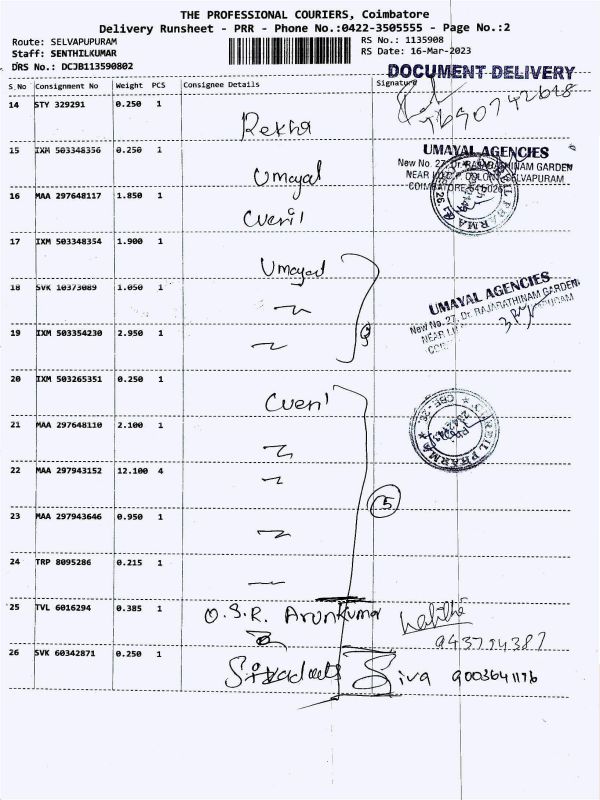 THE PROFESSIONAL COURIERS, Coimbatore
Delivery Runsheet - PRR - Phone No.:0422-3505555 - Page No.:2
Route: SELVAPUPURAM RS No.: 1135908
Staff: SENTHILKUMAR RS Date: 16-Mar-2023
DRS No.: DCJB113590802
DOCUMENT DELIVERY
S.No Consignment No Weight PCS Consignee Details Signature
14 STY 329291 0.250 1
Rekha
15 IXM 503348356 0.250 1
Umayal
UMAYAL AGENCIES
New No. 27, Dr. RAJARATHINAM GARDEN
SELVAPURAM
16 MAA 297648117 1.850 1
17 IXM 503348354 1.900 1
Umayal
18 SVK 10373089 1.050 1
UMAYAL AGENCIES
New No. 27, Dr. RAJARATHINAM GARDEN
19 IXM 503354230 2.950 1
20 IXM 503265351 0.250 1
21 MAA 297648110 2.100 1
22 MAA 297943152 12.100 4
5
23 MAA 297943646 0.950 1
24 TRP 8095286 0.215 1
25 TVL 6016294 0.385 1
O.S.R. Arunkumar
26 SVK 60342871 0.250 1
Siva 9003641176